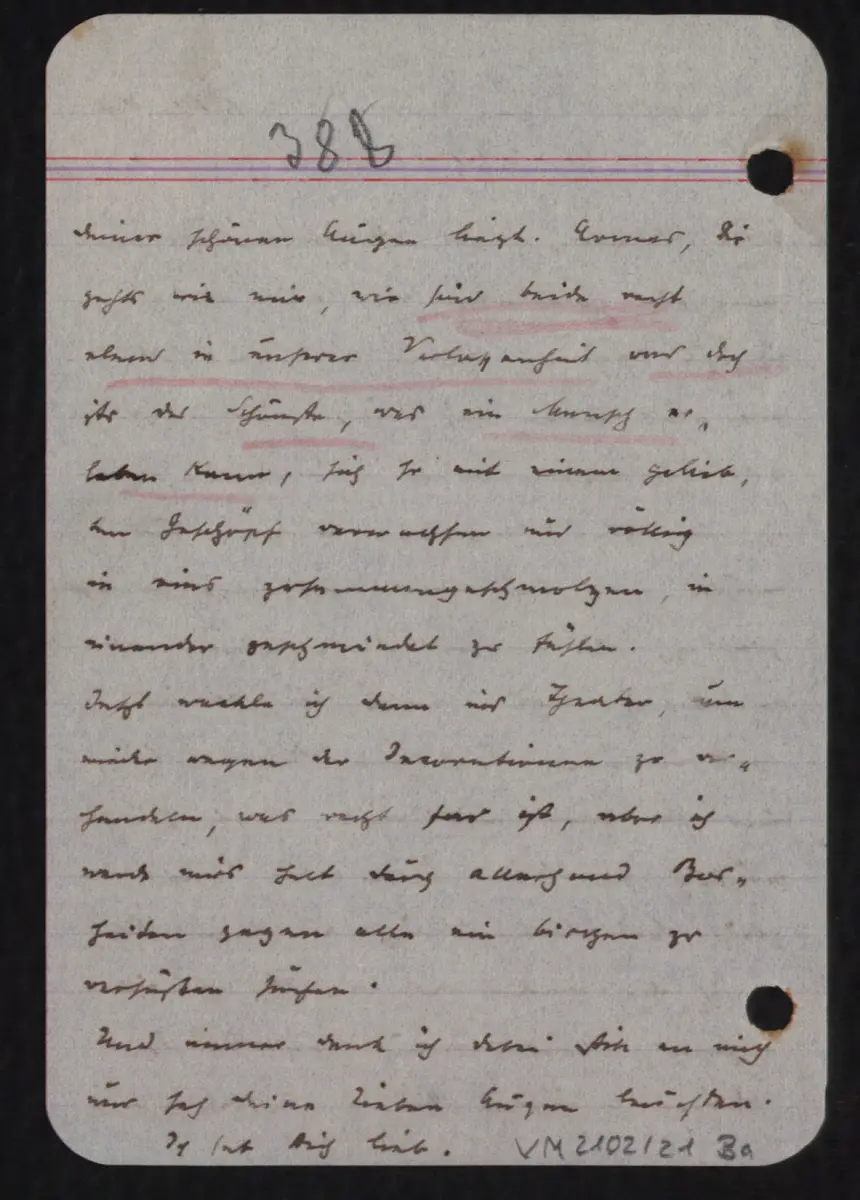 388
deiner schönen Augen liegt. Armes, Dir
gehts wie mir, wir sind beide recht
elend in unserer Verlassenheit und doch
ists das Schönste, was ein Mensch er-
leben kann, sich so mit einem gelieb-
ten Geschöpf verwachsen und völlig
in eins zusammengeschmolzen, in
einander geschmiedet zu fühlen.
Jetzt wackle ich dann ins Theater, um
wieder wegen der Decorationen zu ver-
handeln, was recht fad ist, aber ich
werde mirs halt durch allerhand Bos-
heiten gegen alle ein bischen zu
versüßen suchen.
Und immer denk ich dabei Du an mich
und seh deine lieben Augen leuchten.
Ich hab Dich lieb. VM 2102/21 Ba